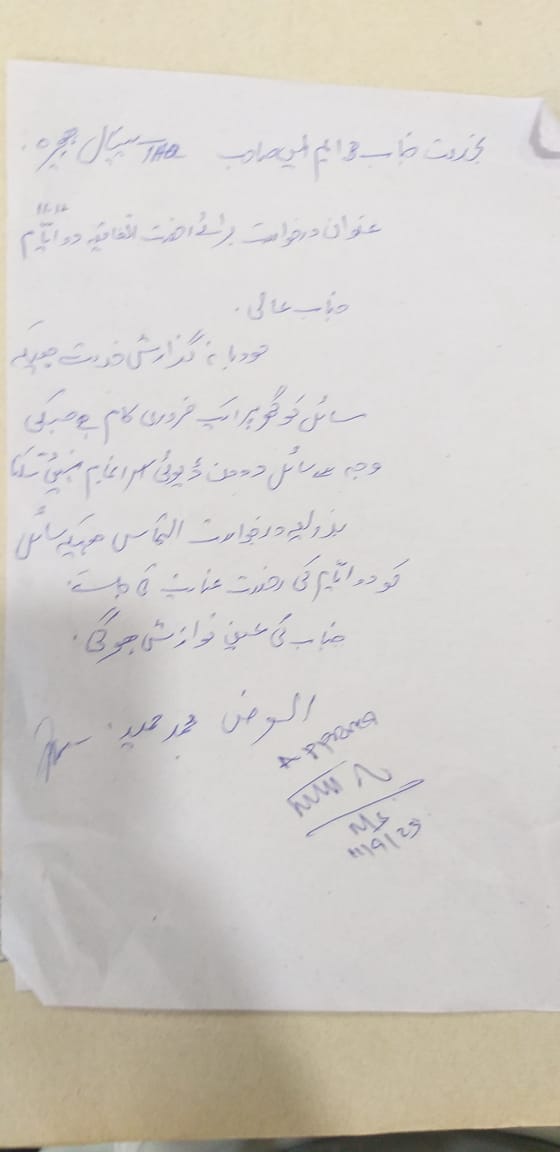 بخدمت جناب ایم ایس صاحب THQ ہسپتال ہجیرہ۔
11،12
عنوان درخواست برائے رخصت اتفاقیہ دو ایّام
جناب عالی۔
مودبانہ گذارش خدمت ہیکہ
سائل کو گھر پر ایک ضروری کام ہے جسکی
وجہ سے سائل دو دن ڈیوٹی سر انجام نہیں دے سکتا
بذریعہ درخواست التماس ہیکہ سائل
کو دو ایّام کی رخصت عنایت کی جائے۔
جناب کی عین نوازش ہو گی۔
العارض محمد حمید
Approved
MS
11/9/23